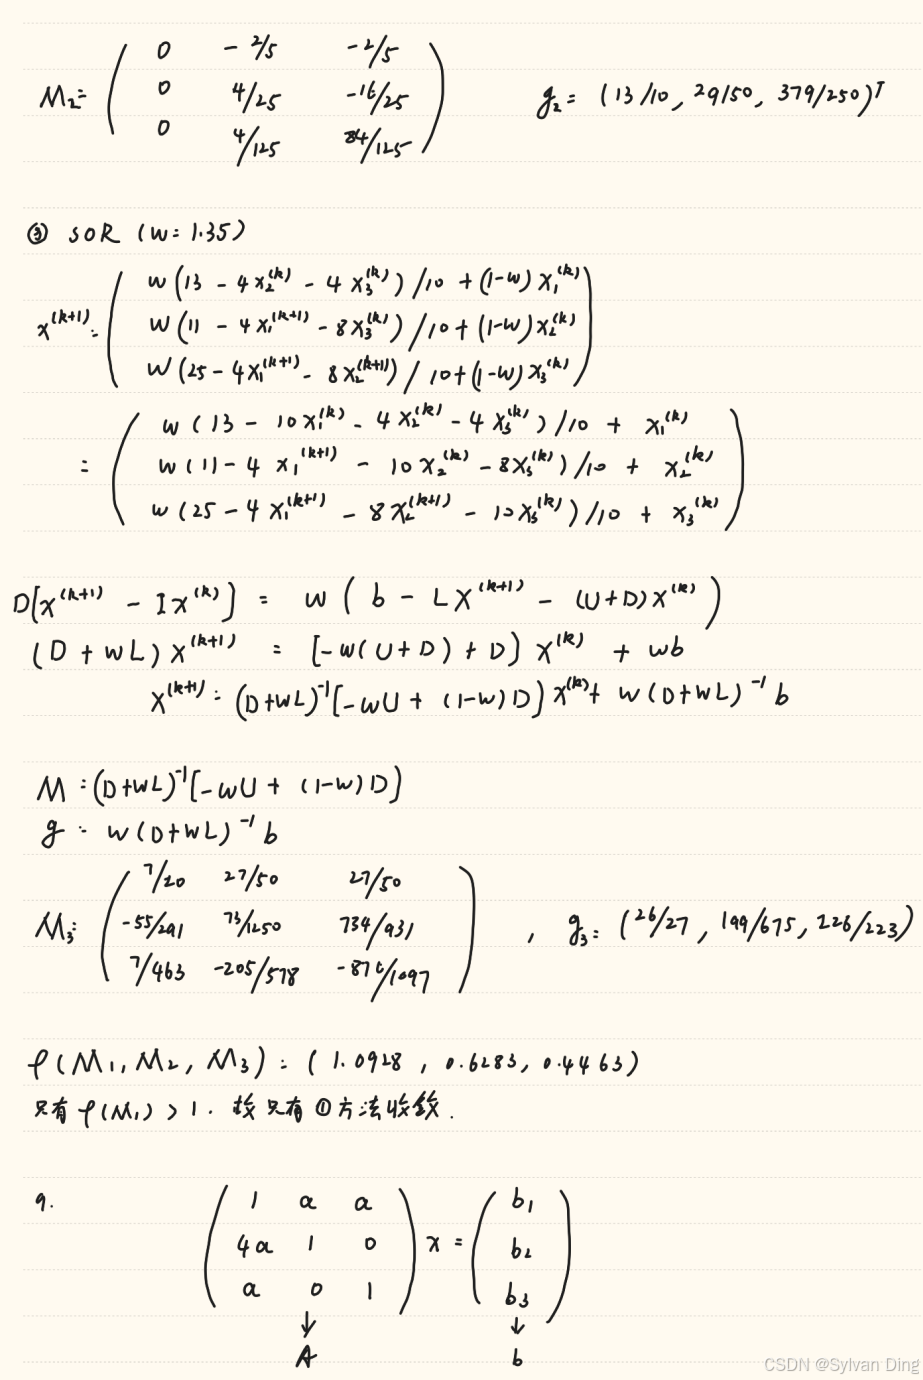 M₂= ( 0 -2/5 -2/5
0 4/25 -16/25
0 4/125 84/125 ) g₂= (13/10, 29/50, 379/250)ᵀ
③ SOR (w=1.35)
x^(k+1) = ( w(13 - 4x₂^(k) - 4x₃^(k))/10 + (1-w)x₁^(k)
w(11 - 4x₁^(k+1) - 8x₃^(k))/10 + (1-w)x₂^(k)
w(25 - 4x₁^(k+1) - 8x₂^(k+1))/10 + (1-w)x₃^(k) )
= ( w(13 - 10x₁^(k) - 4x₂^(k) - 4x₃^(k))/10 + x₁^(k)
w(11 - 4x₁^(k+1) - 10x₂^(k) - 8x₃^(k))/10 + x₂^(k)
w(25 - 4x₁^(k+1) - 8x₂^(k+1) - 10x₃^(k))/10 + x₃^(k) )
D[x^(k+1) - Ix^(k)] = w(b - Lx^(k+1) - (U+D)x^(k))
(D+wL)x^(k+1) = [-w(U+D)+D]x^(k) + wb
x^(k+1) = (D+wL)⁻¹[-wU + (1-w)D]x^(k) + w(D+wL)⁻¹b
M = (D+wL)⁻¹[-wU + (1-w)D]
g = w(D+wL)⁻¹b
M₃= ( 7/20 27/50 27/50
-55/291 73/1250 734/931
7/463 -205/578 -876/1097 ) , g₃= (26/27, 199/675, 226/223)
ρ(M₁, M₂, M₃) = (1.0928, 0.6283, 0.4463)
只有ρ(M₁)>1. 故只有①方法收敛.
9. ( 1 a a
4a 1 0
a 0 1 ) x = ( b₁
b₂
b₃ )
↓ ↓
A b
CSDN @Sylvan Ding